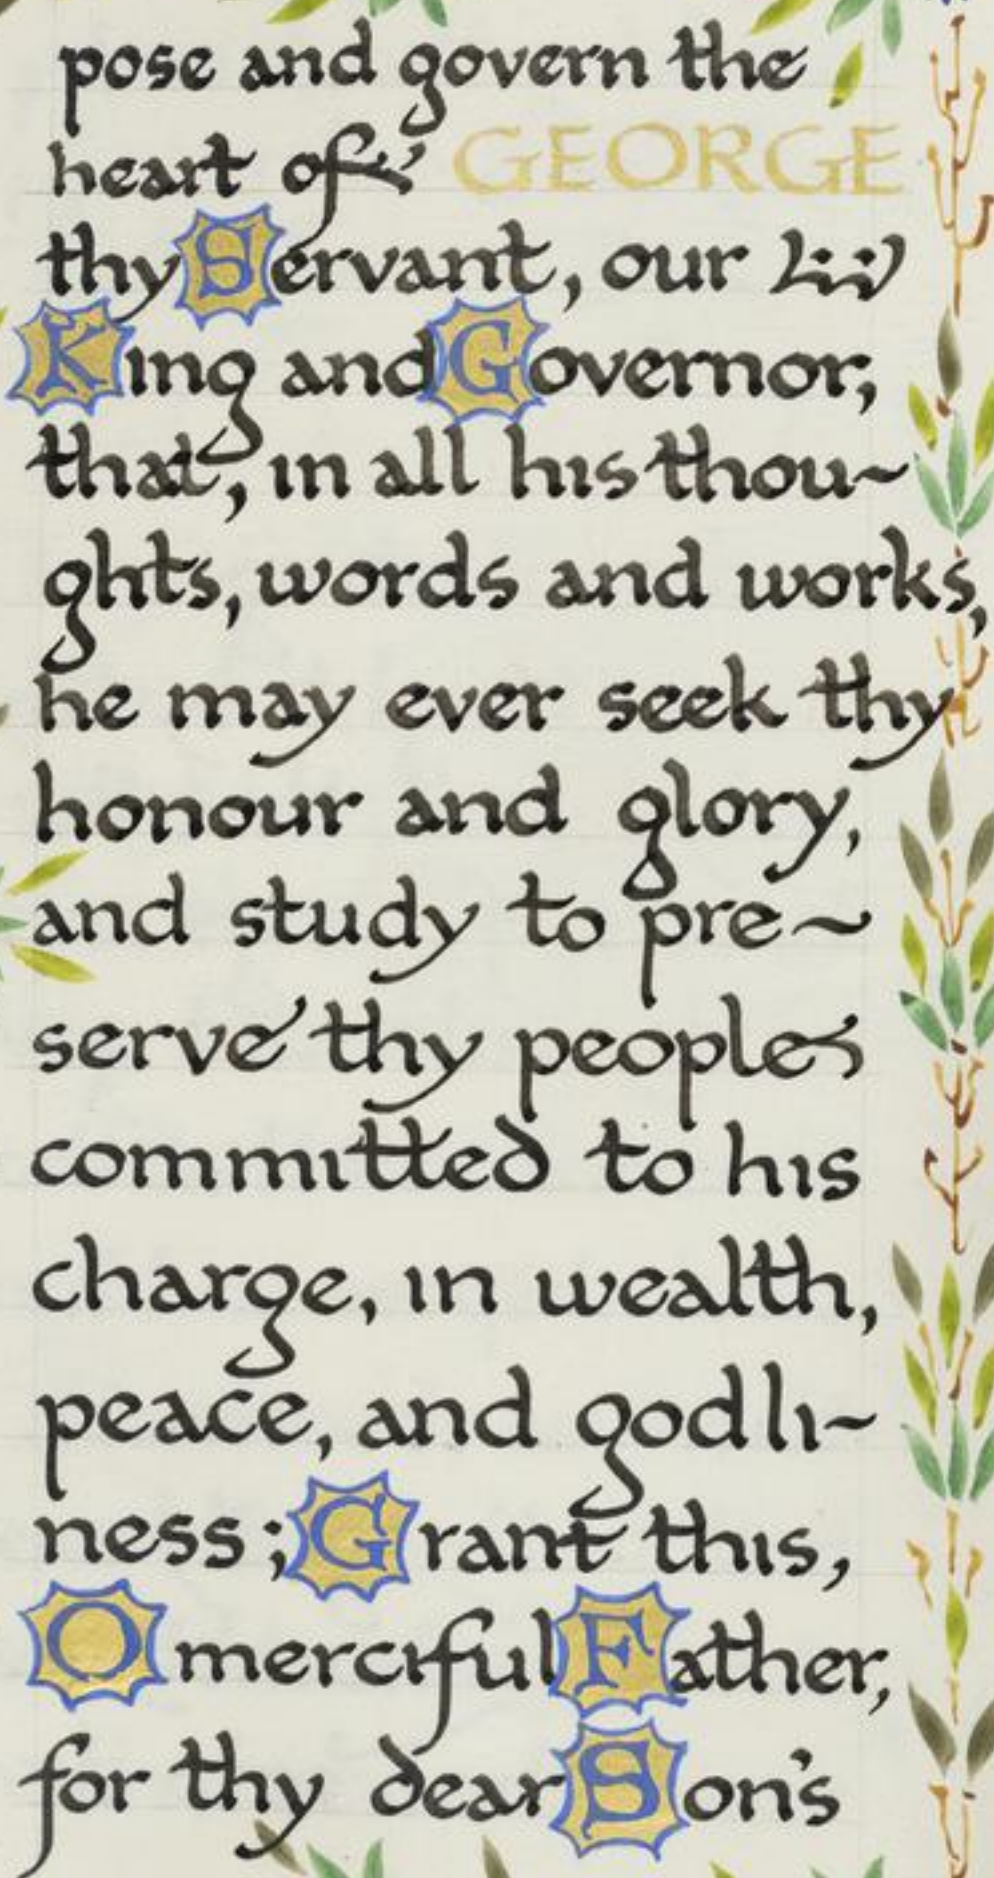 pose and govern the
heart of GEORGE
thy Servant, our
King and Governor,
that, in all his thou~
ghts, words and works,
he may ever seek thy
honour and glory,
and study to pre~
serve thy people
committed to his
charge, in wealth,
peace, and godli~
ness; Grant this,
O merciful Father,
for thy dear Son's